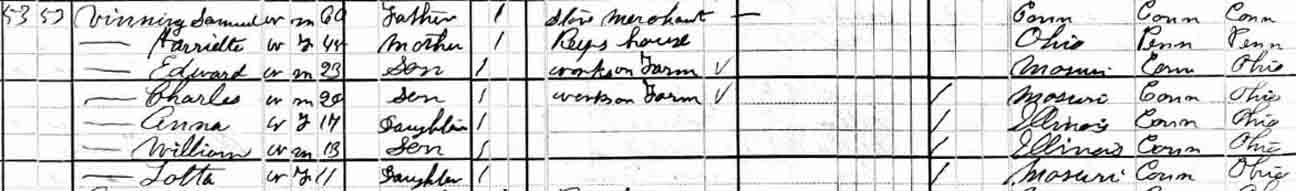 53 53 Vinning Samuel w m 60 Father 1 Store Merchant — Conn Conn Conn
— Harriette w F 44 Mother 1 Keeps house Ohio Penn Penn
— Edward w m 23 Son 1 works on Farm √ Mosuri Conn Ohio
— Charles w m 20 Son 1 works on Farm √ / Mosuri Conn Ohio
— Anna w F 17 Daughter 1 / Illinois Conn Ohio
— William w m 13 Son 1 / Illinois Conn Ohio
— Lotta w F 11 Daughter 1 / Mosuri Conn Ohio